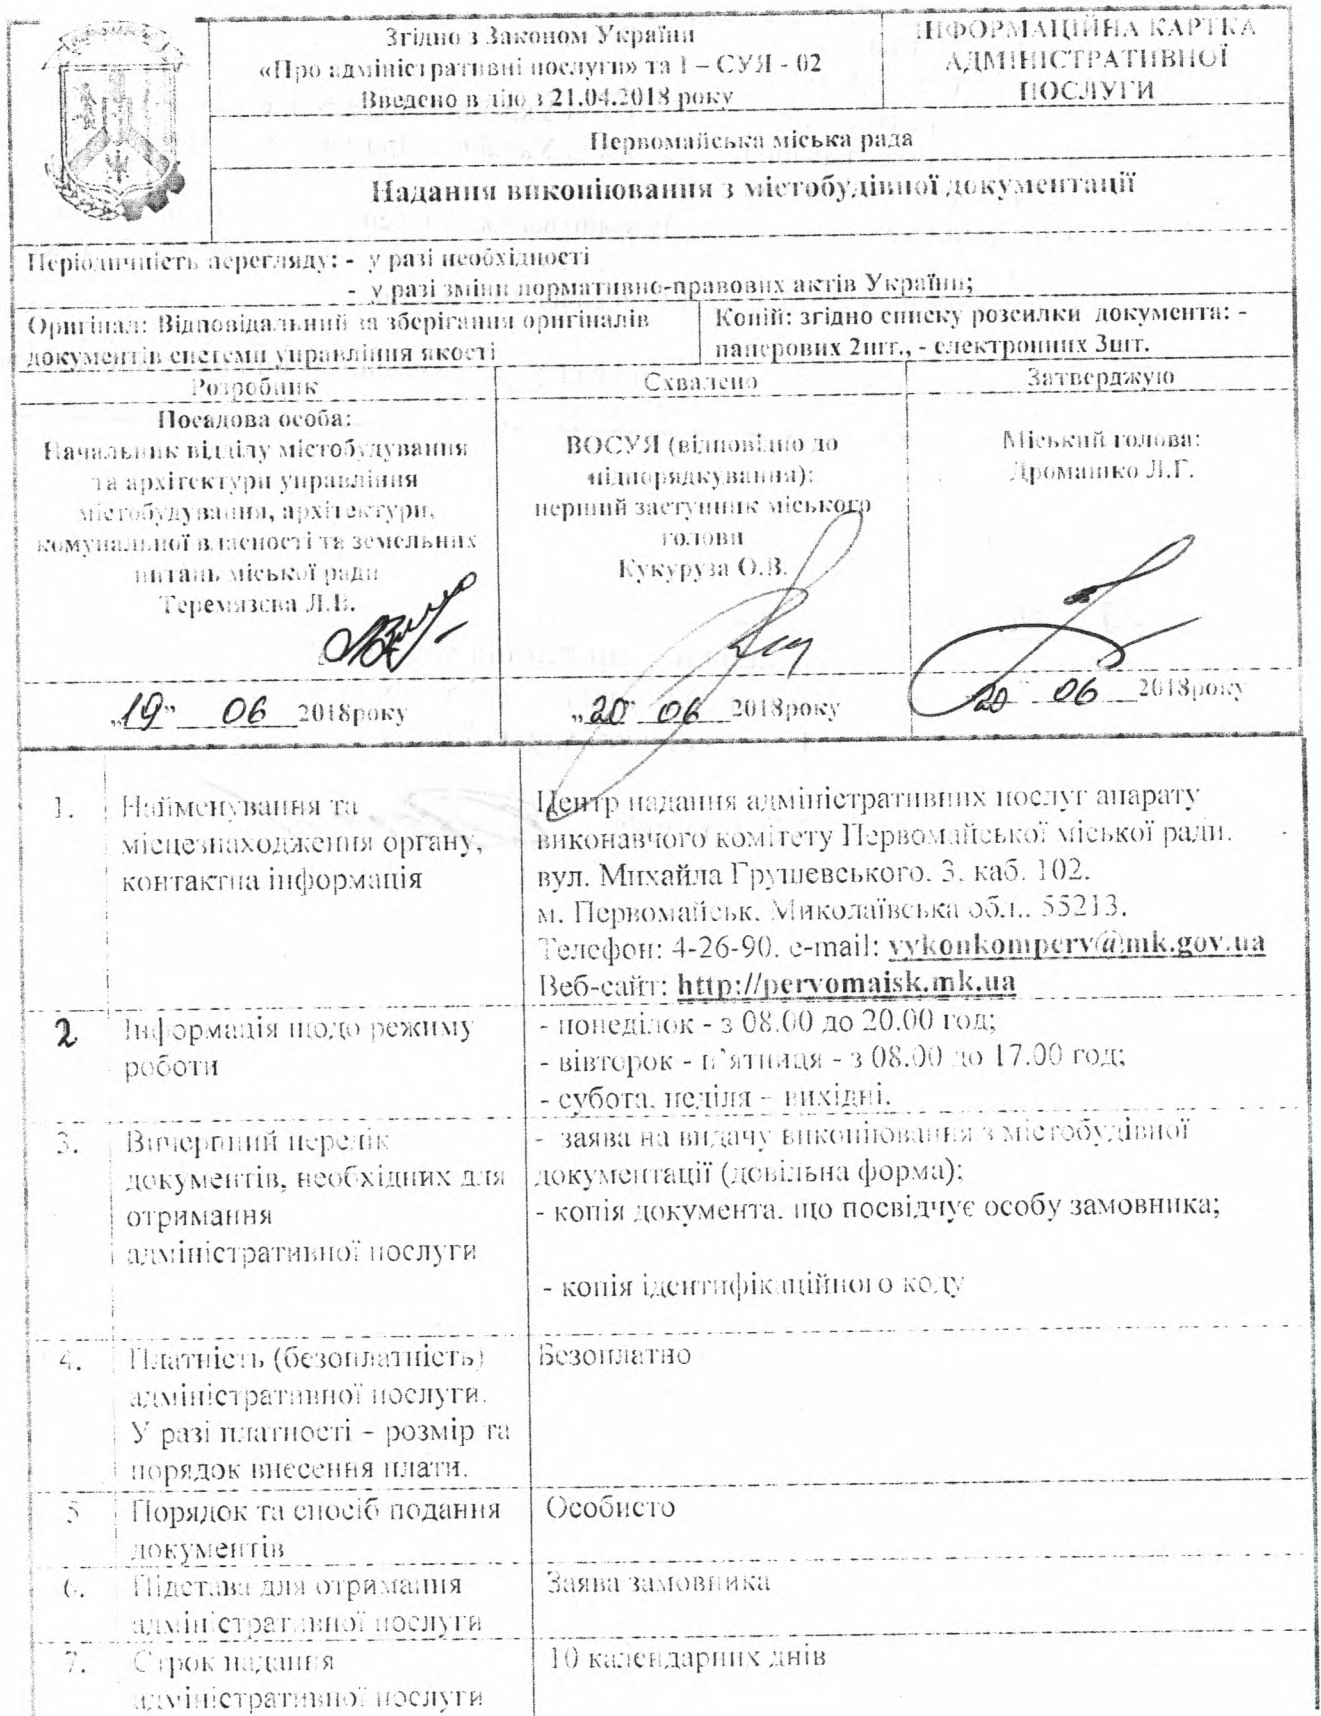 Згідно з Законом України
«Про адміністративні послуги» та І – СУЯ - 02
Введено в дію з 21.04.2018 року
ІНФОРМАЦІЙНА КАРТКА
АДМІНІСТРАТИВНОЇ
ПОСЛУГИ
Первомайська міська рада
Надання викопіювання з містобудівної документації
Періодичність перегляду: - у разі необхідності
- у разі зміни нормативно-правових актів України;
Оригінал: Відповідальний за зберігання оригіналів
документів системи управління якості
Копій: згідно списку розсилки документа: -
паперових 2шт., - електронних 3шт.
Розробник
Схвалено
Затверджую
Посадова особа:
Начальник відділу містобудування
та архітектури управління
містобудування, архітектури,
комунальної власності та земельних
питань міської ради
Теремязєва Л.В.
ВОСУЯ (відповідно до
підпорядкування):
перший заступник міського
голови
Кукуруза О.В.
Міський голова:
Дромашко Л.Г.
„19” 06 2018року
„20” 06 2018року
20” 06 2018року
1. Найменування та
місцезнаходження органу,
контактна інформація
Центр надання адміністративних послуг апарату
виконавчого комітету Первомайської міської ради.
вул. Михайла Грушевського. 3. каб. 102.
м. Первомайськ. Миколаївська обл.. 55213.
Телефон: 4-26-90. e-mail: vykonkomperv@mk.gov.ua
Веб-сайт: http://pervomaisk.mk.ua
2. Інформація щодо режиму
роботи
- понеділок - з 08.00 до 20.00 год;
- вівторок - п’ятниця - з 08.00 до 17.00 год;
- субота. неділя – вихідні.
3. Вичерпний перелік
документів, необхідних для
отримання
адміністративної послуги
- заява на видачу викопіювання з містобудівної
документації (довільна форма);
- копія документа. що посвідчує особу замовника;
- копія ідентифікаційного коду
4. Платність (безоплатність)
адміністративної послуги.
У разі платності – розмір та
порядок внесення плати.
Безоплатно
5 Порядок та спосіб подання
документів
Особисто
6. Підстава для отримання
адміністративної послуги
Заява замовника
7. Строк надання
адміністративної послуги
10 календарних днів